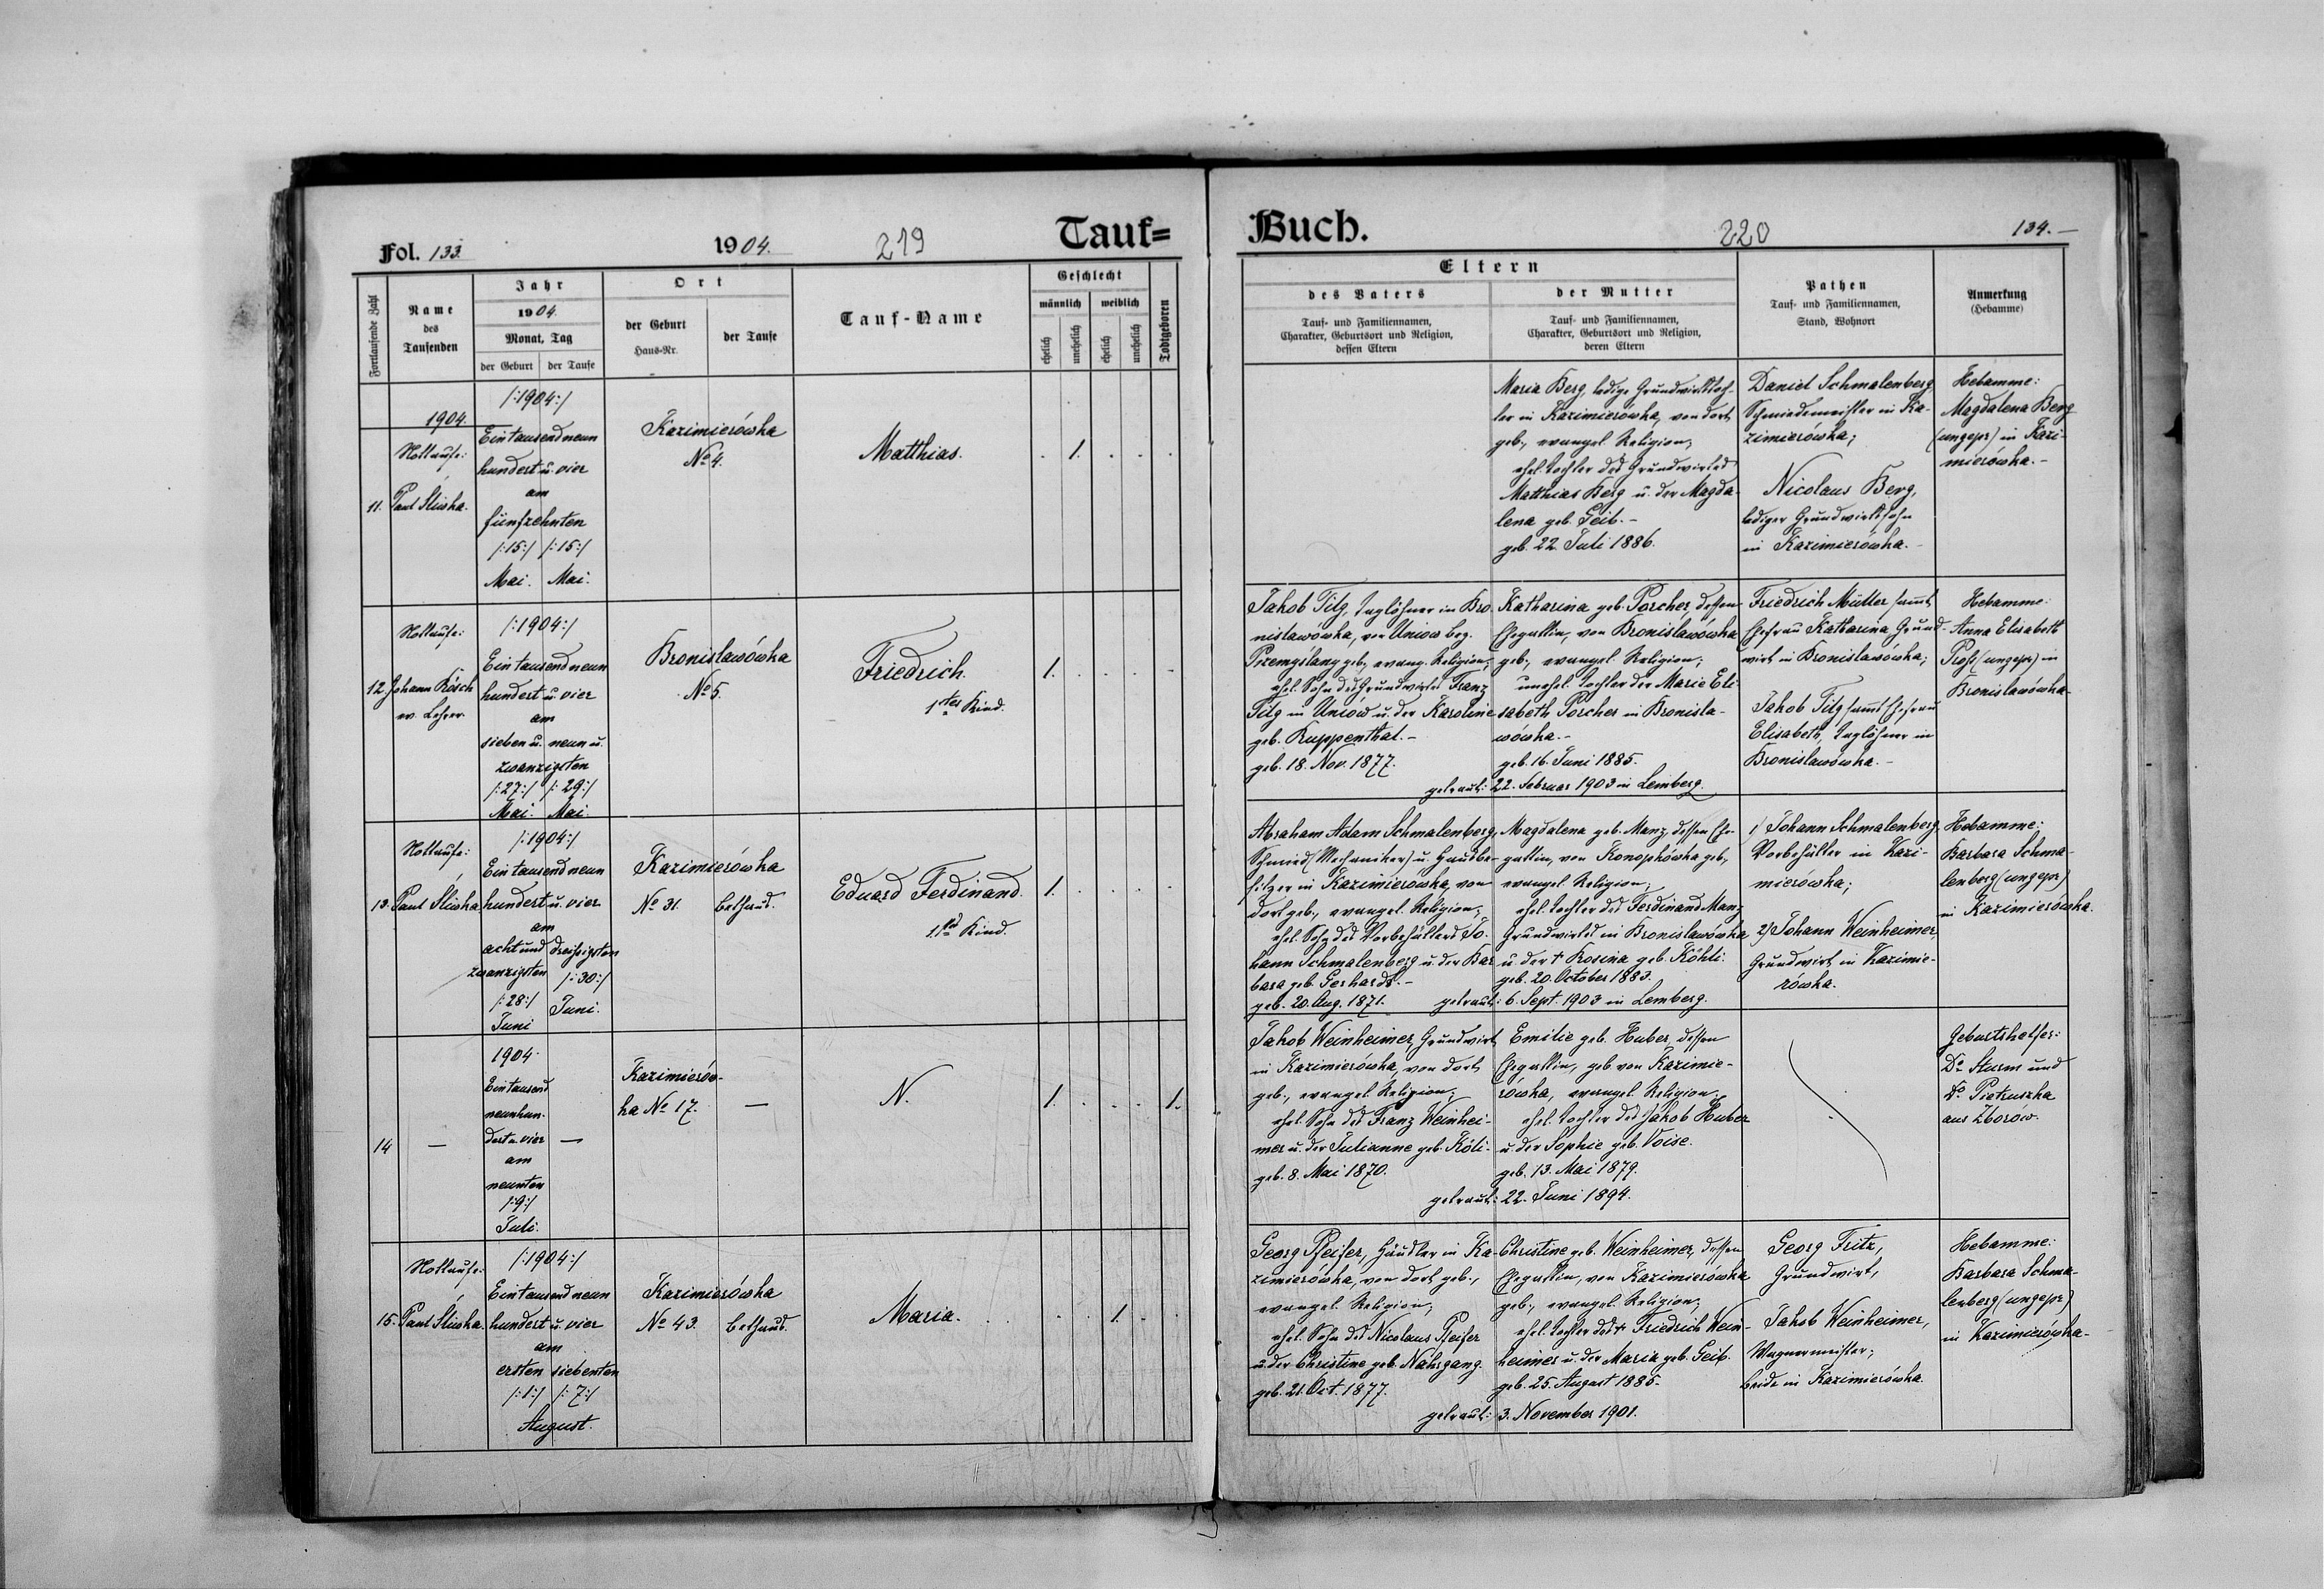 Fol. 133.
1904.
219
Tauf=
Fortlaufende Zahl
Name
des
Taufenden
Jahr
1904
Monat, Tag
der Geburt
der Taufe
Ort
der Geburt
Haus-Nr.
der Taufe
Tauf-Name
Geschlecht
männlich
weiblich
ehelich
unehelich
ehelich
unehelich
Todtgeboren
1904.
Nottaufe:
11. Paul Śliwka.
/:1904:/
Ein tausend neun
hundert u. vier
am
fünfzehnten
/:15:/ /:15:/
Mai. Mai.
Kazimierówka
No 4.
Matthias.
. 1. . . .
Nottaufe:
12. Johann Rösch
ev. Lehrer.
/:1904:/
Ein tausend neun
hundert u. vier
am
sieben u. neun u.
zwanzigsten
/:27:/ /:29:/
Mai. Mai.
Bronislawówka
No 5.
Friedrich.
1tes Kind.
1. . . . .
Nottaufe:
13. Paul Śliwka.
/:1904:/
Ein tausend neun
hundert u. vier
am
acht und dreissigsten
zwanzigsten /:30:/
/:28:/ Juni.
Juni
Kazimierówka
No 31. Bethaus.
Eduard Ferdinand.
1. Kind.
1. . . . .
14 —
1904.
Ein tausend
neunhun-
dert u. vier —
am
neunten
/:9:/
Juli.
Kazimierów-
ka No 17. —
N.
1. . . . 1.
Nottaufe:
15. Paul Śliwka.
/:1904:/
Ein tausend neun
hundert u. vier
am
ersten siebenten
/:1:/ /:7:/
August.
Kazimierówka
No 43. Bethaus.
Maria.
. . 1. . .
Buch.
220
134.—
Eltern
des Vaters
Tauf- und Familiennamen,
Charakter, Geburtsort und Religion,
dessen Eltern
der Mutter
Tauf- und Familiennamen,
Charakter, Geburtsort und Religion,
deren Eltern
Pathen
Tauf- und Familiennamen,
Stand, Wohnort
Anmerkung
(Hebamme)
Maria Berg, ledige Grundwirtstoch-
ter in Kazimierówka, von dort
geb., evangel. Religion;
ehel. Tochter des Grundwirtes
Matthias Berg u. der Magda-
lena geb. Geib.-
geb. 22. Juli 1886.
Daniel Schmalenberg
Schmiedemeister in Ka-
zimierówka;
Nicolaus Berg,
lediger Grundwirtssohn
in Kazimierówka.
Hebamme:
Magdalena Berg
(ungepr) in Kazi-
mierówka.-
Jakob Filg, Taglöhner in Bro-
nislawówka, von Uniow bez.
Przemyślany geb., evang. Religion;
ehel. Sohn des Grundwirtes Franz
Filg in Uniów u. der Karoline
geb. Ruppenthal.-
geb. 18. Nov. 1877.
Katharina geb. Porcher, dessen
Ehegattin, von Bronislawówka
geb., evangel. Religion;
unehel. Tochter der Marie Eli-
sabeth Porcher in Bronisla-
wówka.-
geb. 16. Juni 1885.
getraut: 22. Februar 1903 in Lemberg.
Friedrich Müller samt
Ehefrau Katharina Grund-
wirt in Bronislawówka;
Jakob Filg samt Ehefrau
Elisabeth, Taglöhner in
Bronislawówka.-
Hebamme:
Anna Elisabeth
(ungepr) in
Bronislawówka
Abraham Adam Schmalenberg,
Schmied (Mechaniker) u. Hausbe-
sitzer in Kazimierowka, von
dort geb., evangel. Religion;
ehel. Sohn des Vorbehälters Jo-
hann Schmalenberg u. der Bar-
bara geb. Gerhardt.-
geb. 20. Aug. 1871.
Magdalena geb. Manz, dessen Ehe-
gattin, von Konopkówka geb.,
evangel. Religion;
ehel. Tochter des Ferdinand Manz
Grundwirtes in Bronislawówka
u. der † Rosina geb. Köhli.
geb. 20. October 1883.
getraut: 6. Sept. 1903 in Lemberg.
1) Johann Schmalenberg
Vorbehälter in Kazi-
mierówka;
2) Johann Weinheimer,
Grundwirt in Kazimie-
rówka.
Hebamme:
Barbara Schma-
lenberg (ungepr)
in Kazimierówka.
Jakob Weinheimer, Grundwirt
in Kazimierówka, von dort
geb., evangel. Religion;
ehel. Sohn des Franz Weinhei-
mer u. der Julianne geb. Köli.
geb. 8. Mai 1870.
Emilie geb. Huber, dessen
Ehegattin, geb. von Kazimie-
rówka, evangel. Religion;
ehel. Tochter des Jakob Huber
u. der Sophie geb. Voise.
geb. 13. Mai 1879.
getraut: 22. Juni 1894.
Geburtshelfer:
Dr Sturm und
Dr Pietruszka
aus Zborów.
Georg Pfeifer, Händler in Ka-
zimierówka, von dort geb.,
evangel. Religion;
ehel. Sohn des Nicolaus Pfeifer
u. der Christine geb. Nahrgang.
geb. 21. Oct. 1877.
Christine geb. Weinheimer, dessen
Ehegattin, von Kazimierówka
geb., evangel. Religion;
ehel. Tochter des † Friedrich Wein-
heimer u. der Maria geb. Geib.
geb. 25. August 1885.
getraut: 3. November 1901.
Georg Fritz,
Grundwirt,
Jakob Weinheimer,
Wagnermeister;
beide in Kazimierówka.
Hebamme:
Barbara Schma-
lenberg (ungepr)
in Kazimierówka-